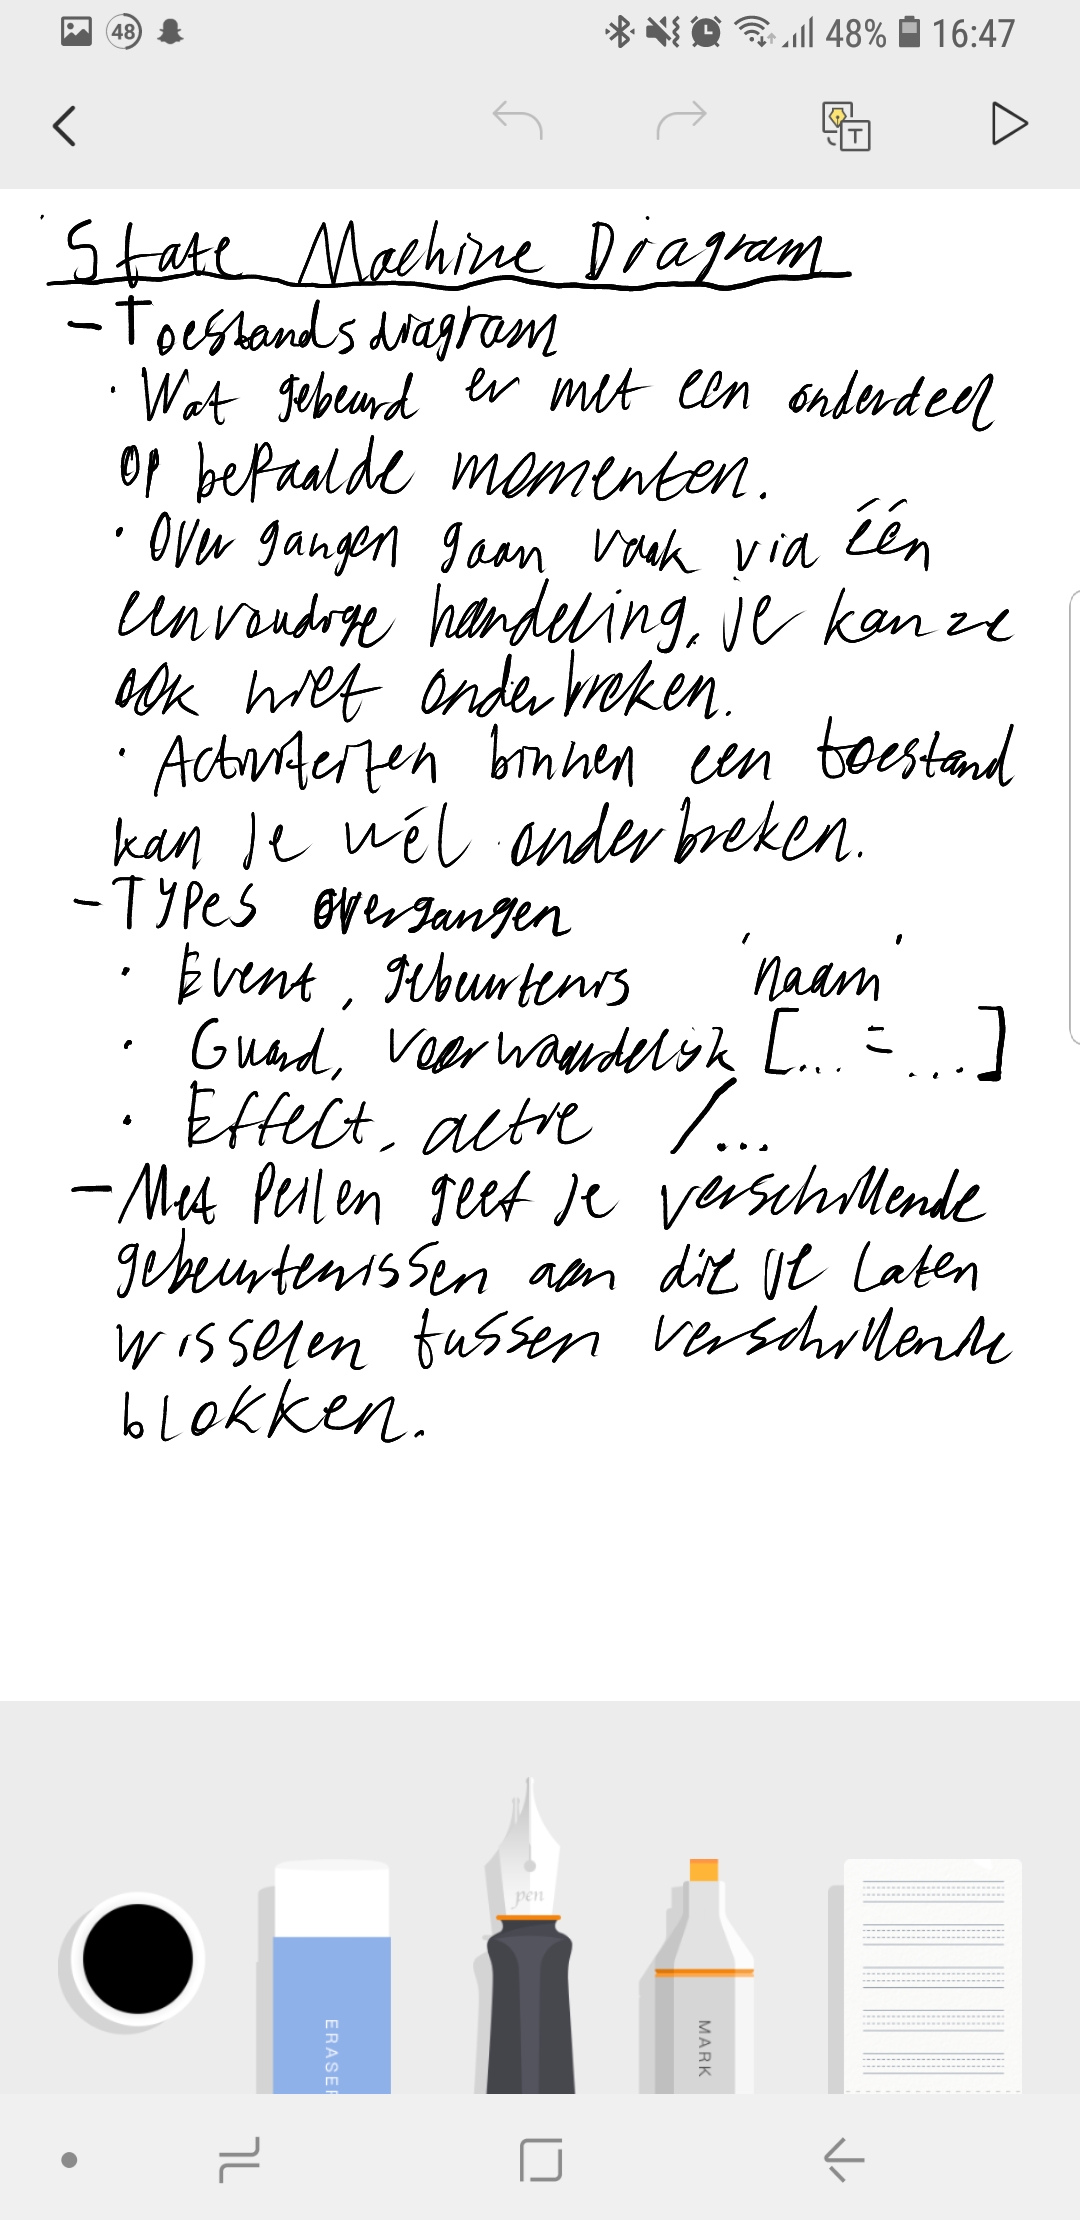 48 48% 16:47
T
State Machine Diagram
- Toestandsdiagram
· Wat gebeurd er met een onderdeel
op bepaalde momenten.
· Overgangen gaan vaak via één
eenvoudige handeling, je kan ze
ook niet onderbreken.
· Activiteiten binnen een toestand
kan je wél onderbreken.
- Types overgangen
· Event, gebeurtenis 'naam'
· Guard, voorwaardelijk [... = ...]
· Effect, actie /...
- Met Peilen geef je verschillende
gebeurtenissen aan die je laten
wisselen tussen verschillende
blokken.
pen
ERASER
MARK